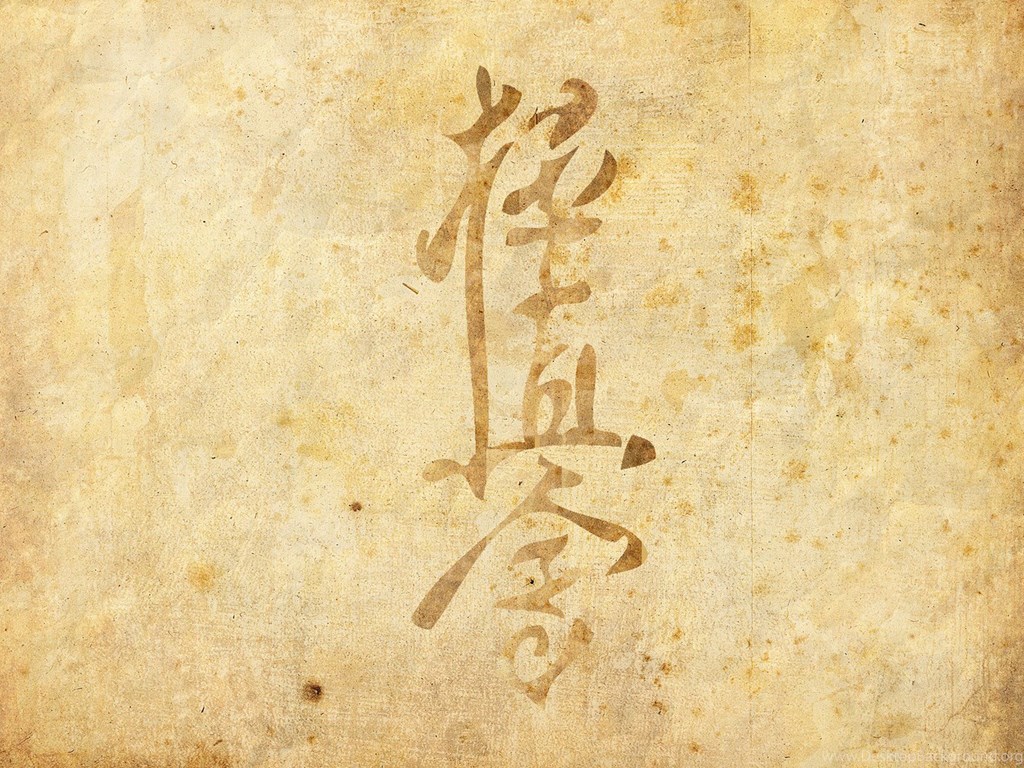 極真会
www.desktopbackground.org